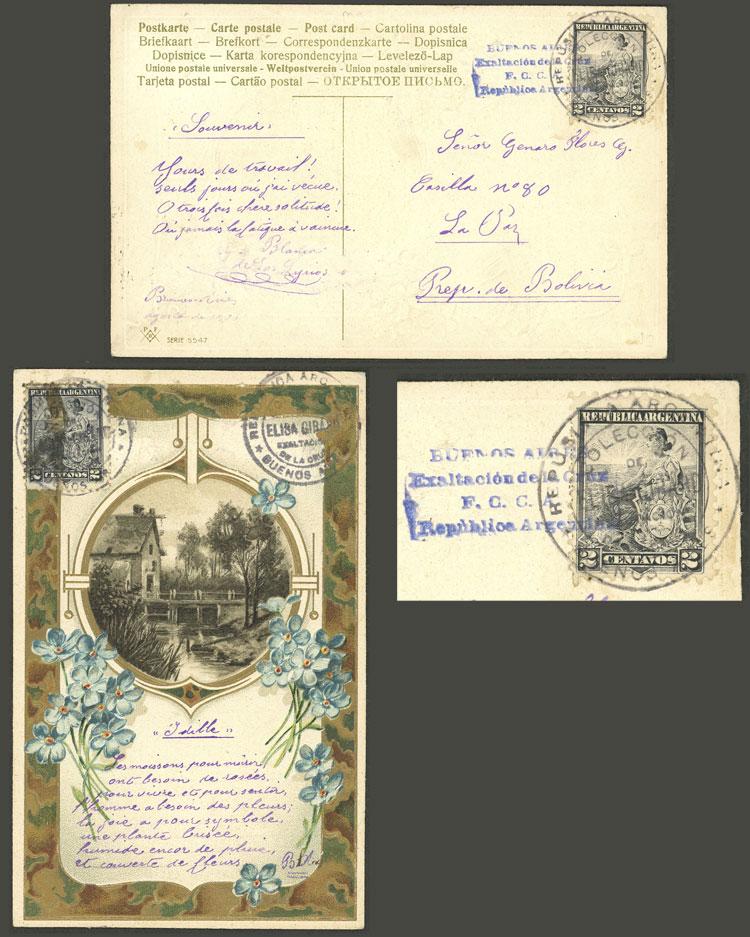 Postkarte — Carte postale — Post card — Cartolina postale
Briefkaart — Brefkort — Correspondenzkarte — Dopisnica
Dopisnice — Karta korespondencyjna — Levelező-Lap
Unione postale universale - Weltpostverein - Union postale universelle
Tarjeta postal — Cartão postal — ОТКРЫТОЕ ПИСЬМО.
BUENOS AIRES
Exaltación de la Cruz
F. C. C.
República Argentina
REPUBLICA ARGENTINA
2 CENTAVOS 2
"Souvenir"
Yours de travail!
seuls jours où j'ai vécue.
O trois fois chere solitude!
Señor Genaro Flores
Casilla nº 80
La Paz
Rep. de Bolivia
Blanca
de los Lyrios
SERIE 5547
REPUBLICA ARGENTINA
2 CENTAVOS
ELISA
EXALTACION
DE LA CRUZ
BUENOS
"Idille"
Les moissons pour mûrir,
ont besoin de rosées,
pour vivre et pour sentir,
l'homme a besoin des pleurs;
la joie a pour symbole,
une plante brisée,
humide encor de pluie,
et couverte de fleurs
BUENOS AIRES
Exaltación de la Cruz
F. C. C.
República Argentina
REPUBLICA ARGENTINA
COLECCION
DE
2 CENTAVOS 2